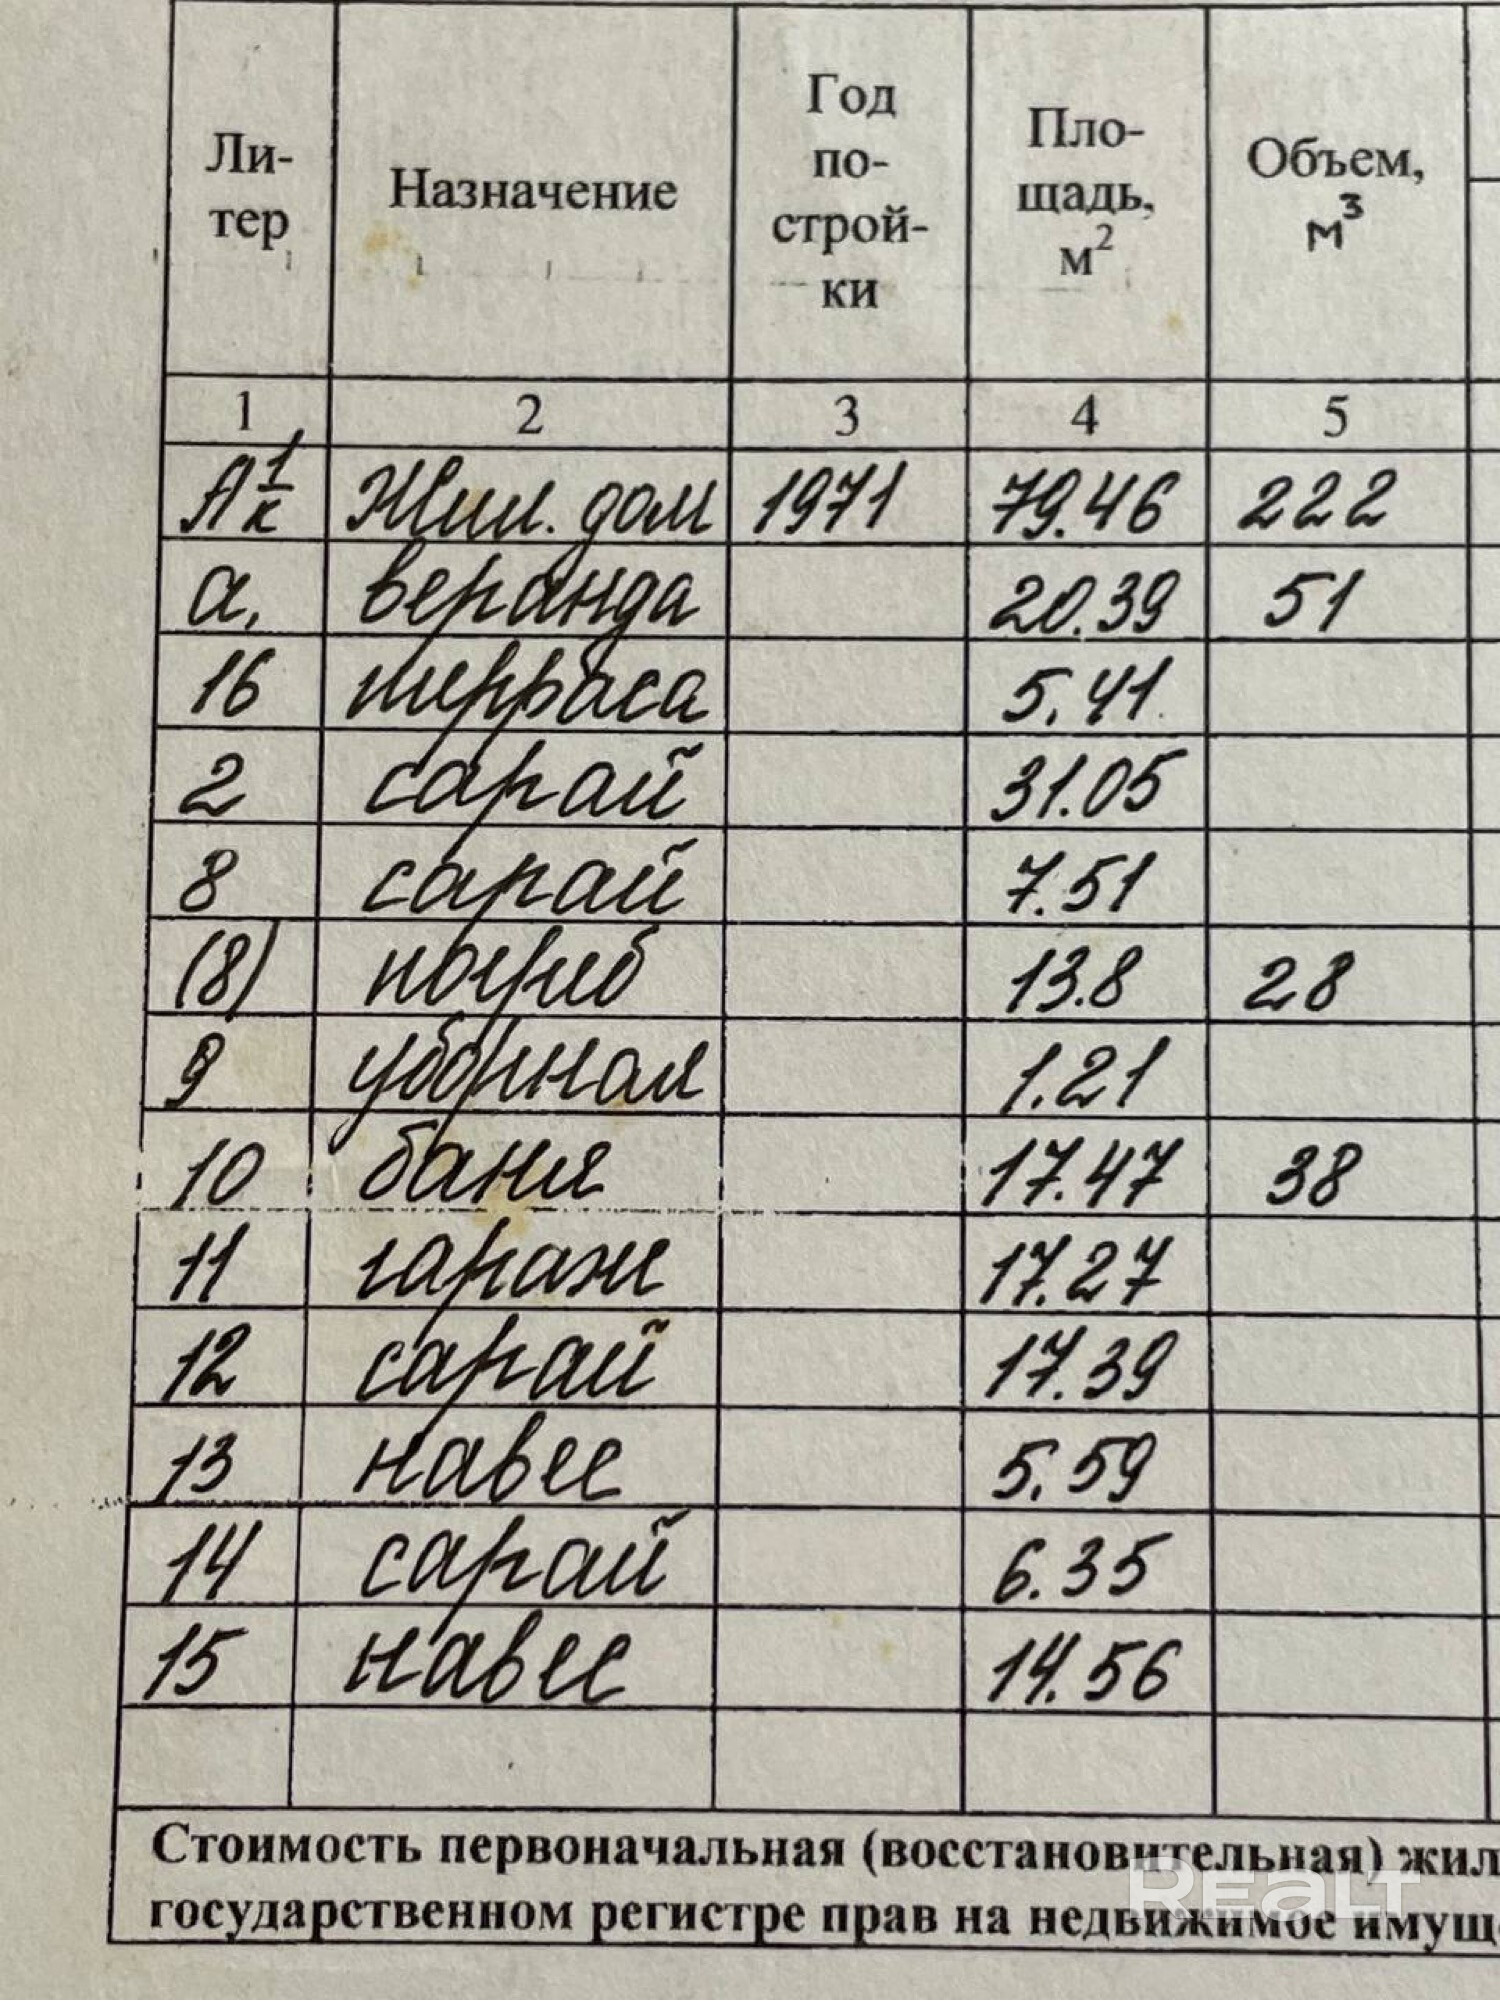 Ли-
тер
Назначение
Год
по-
строй-
ки
Пло-
щадь,
м²
Объем,
м³
1 2 3 4 5
А 1/к Жил. дом 1971 79.46 222
а, веранда 20.39 51
16 терраса 5.41
2 сарай 31.05
8 сарай 7.51
(8) погреб 13.8 28
9 уборная 1.21
10 баня 17.47 38
11 гараж 17.27
12 сарай 17.39
13 навес 5.59
14 сарай 6.35
15 навес 14.56
Стоимость первоначальная (восстановительная) жил
государственном регистре прав на недвижимое имущ
Realt